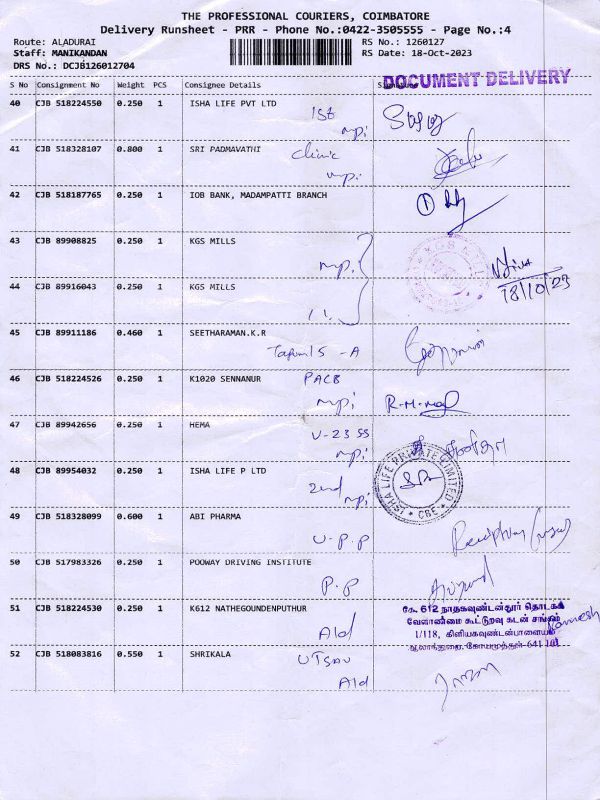 THE PROFESSIONAL COURIERS, COIMBATORE
Delivery Runsheet - PRR - Phone No.:0422-3505555 - Page No.:4
Route: ALADURAI RS No.: 1260127
Staff: MANIKANDAN RS Date: 18-Oct-2023
DRS No.: DCJB126012704
DOCUMENT DELIVERY
S No Consignment No Weight PCS Consignee Details
40 CJB 518224550 0.250 1 ISHA LIFE PVT LTD
1st
mp;
41 CJB 518328107 0.800 1 SRI PADMAVATHI
clinic
mp;
42 CJB 518187765 0.250 1 IOB BANK, MADAMPATTI BRANCH
1
43 CJB 89908825 0.250 1 KGS MILLS
mp;
18/10/23
44 CJB 89916043 0.250 1 KGS MILLS
45 CJB 89911186 0.460 1 SEETHARAMAN.K.R
46 CJB 518224526 0.250 1 K1020 SENNANUR PACB
mp; R-M-
47 CJB 89942656 0.250 1 HEMA
U-23 SS
mp;
48 CJB 89954032 0.250 1 ISHA LIFE P LTD
2nd
mp;
ISHA LIFE PRIVATE LIMITED
CBE
49 CJB 518328099 0.600 1 ABI PHARMA
U.P.P
50 CJB 517983326 0.250 1 POOWAY DRIVING INSTITUTE
P.P
51 CJB 518224530 0.250 1 K612 NATHEGOUNDENPUTHUR
Ald
கே. 612 நாதகவுண்டன்தூர் தொடக்க
வேளாண்மை கூட்டுறவு கடன் சங்கம்
1/118, கிளியகவுண்டன்பாளையம்
ஆலாந்துறை, கோயமுத்தூர்-641 101
Ramesh
52 CJB 518083816 0.550 1 SHRIKALA
UTSAV
Ald